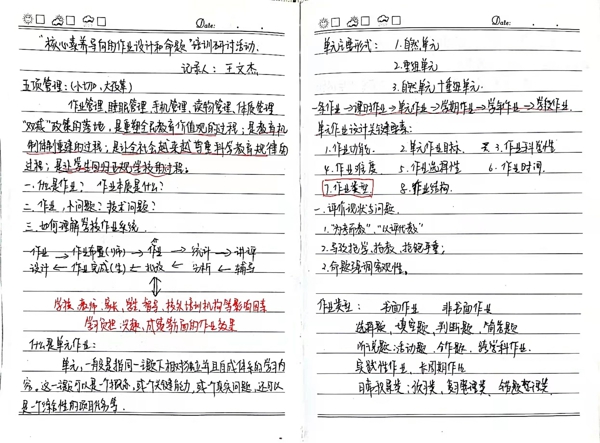 Date:
"核心素养导向的作业设计和命题"培训研讨活动.
记录人: 王文杰
五项管理:(小切口,大改革)
作业管理,睡眠管理,手机管理,读物管理,体质管理
"双减"政策的落地,是重塑全民教育价值观的过程;是教育机
制体制重建的过程;是让全社会越来越尊重科学教育规律的
过程;是让学生回归正规学校的过程;
一.什么是作业? 作业本质是什么?
二.作业,本问题?技术问题?
三.如何理解学校作业系统.
作业→作业布置(师)→作业→统计→讲评
设计←作业完成(生)←批改 分析←辅导
学校,教师,家长,学生,领导,校外培训机构等影响因素
学习负担,兴趣,成绩等方面的作业效果
什么是单元作业:
单元,一般是指同一主题下相对独立并且自成体系的学习内
容。这一主题可以是一个概念,或个关键能力,或个真实问题,还可以
是一个综合性的项目任务等
Date:
单元主要形式: 1.自然单元
2.重组单元
3.自然单元+重组单元.
单元作业设计关键要素:
1.作业功能. 2.单元作业目标. 3.作业科学性
4.作业难度. 5.作业选择性 6.作业时间.
7.作业类型 8.作业结构.
一.评价现状与问题.
1."为考而教","以评代教"
3.命题强调客观性。
作业类型: 书面作业 非书面作业
选择题、填空题、判断题、简答题
听说题:活动题、合作题、跨学科作业.
实践性作业、长周期作业